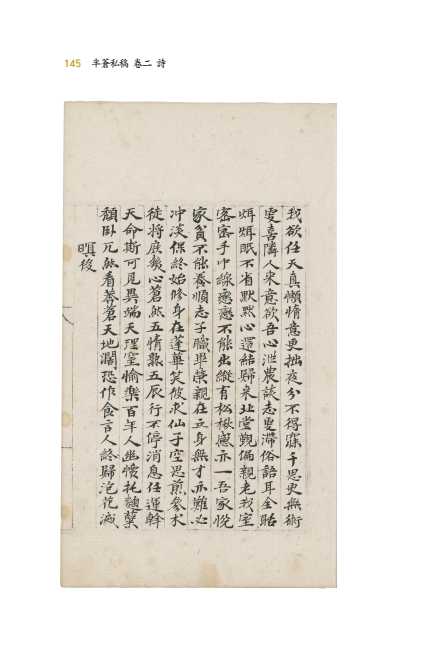 145 半蒼私稿 卷二 詩
我欲任天真懶惰意更拙夜分不得寐千思更無術
更喜隣人來意欲吾心泄農談志更滯俗語耳全聒
炯炯眠不省默默心還結歸來北堂覲偏親老我室
密密手中線 不能出縱有松楸 亦一吾家悅
家貧不能養順志子職畢榮親在立身無才亦難必
冲淡保終始修身在蓬蓽笑彼求仙子空思煎參朮
徒將庭幾心蒼然五情熱五辰行不停消息任運斡
天命斯可見異端天理窒愉樂百年人幽懷托 蘗
頹臥兀然看蒼蒼天地濶恐作食言人終歸泡花滅
暝後